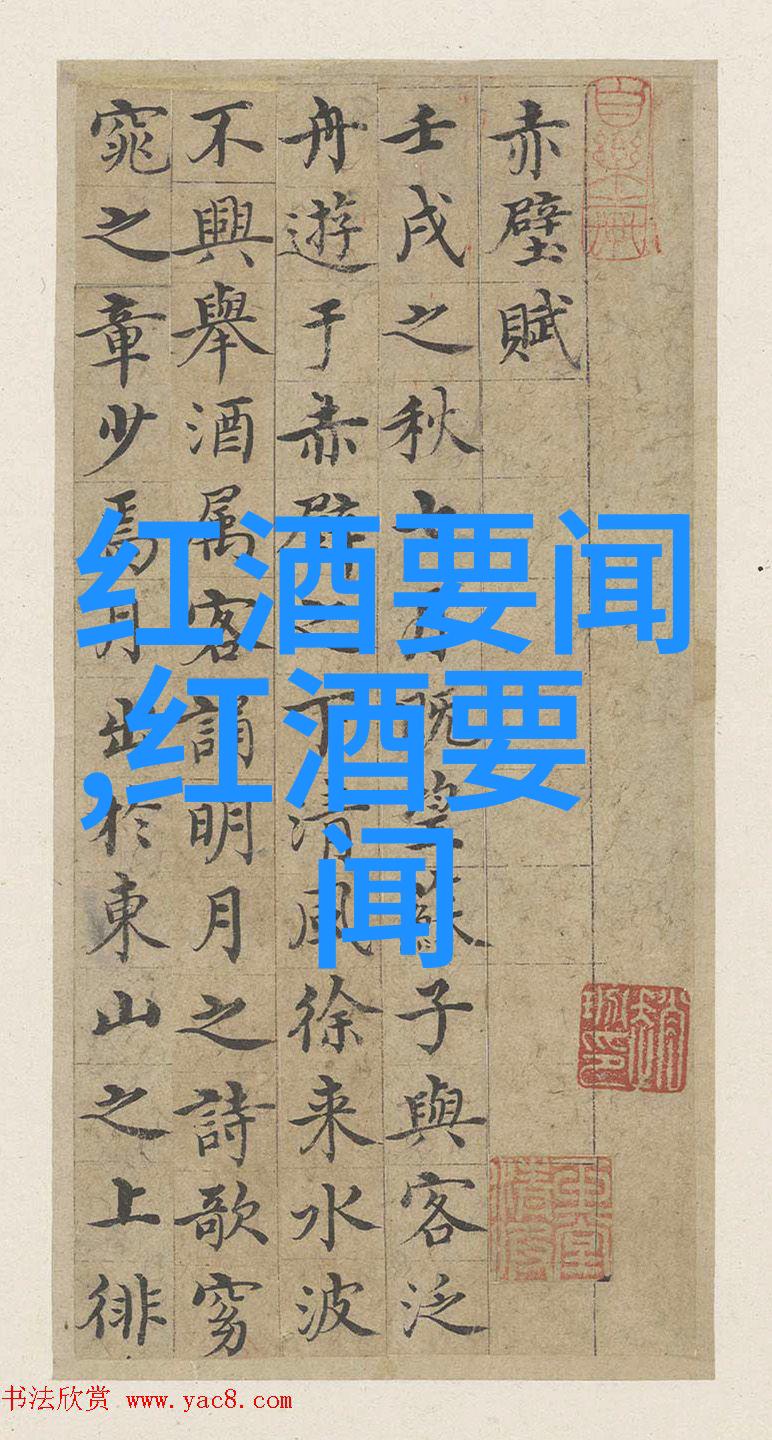 赤壁賦
壬戌之秋七月既望蘇子與客泛
舟遊于赤壁之下清風徐来水波
不興舉酒属客誦明月之詩歌窈
窕之章少焉月出於東山之上徘
红酒要闻
,红酒要
闻
书法欣赏 www.yac8.com